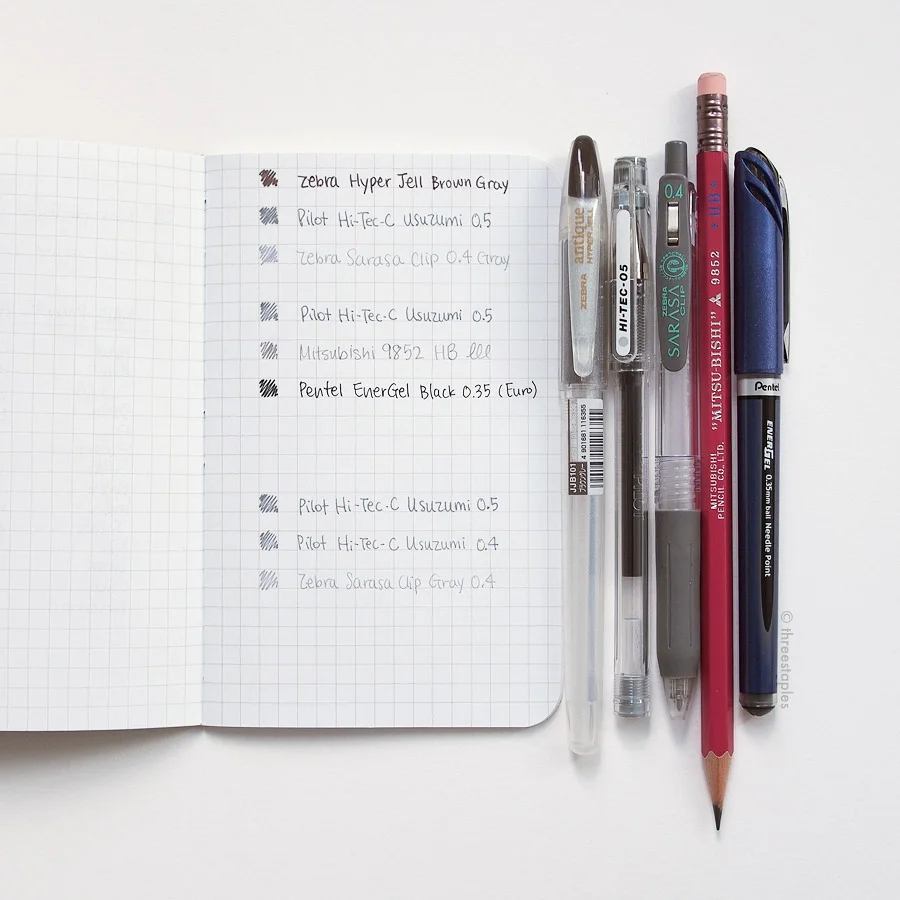 Zebra Hyper Jell Brown Gray
Pilot Hi-Tec-C Usuzumi 0.5
Zebra Sarasa Clip 0.4 Gray
Pilot Hi-Tec-C Usuzumi 0.5
Mitsubishi 9852 HB lll
Pentel EnerGel Black 0.35 (Euro)
Pilot Hi-Tec-C Usuzumi 0.5
Pilot Hi-Tec-C Usuzumi 0.4
Zebra Sarasa Clip Gray 0.4
ZEBRA antique
HYPER JELL
JJB101
ブラウングレー
4 901681 116355
HI-TEC-05
PILOT
0.4
ZEBRA
SARASA
CLIP
MITSUBISHI
PENCIL CO., LTD.
"MITSU-BISHI" 9852 HB
Pentel
ENERGEL 0.35mm ball Needle Point
© threestaples